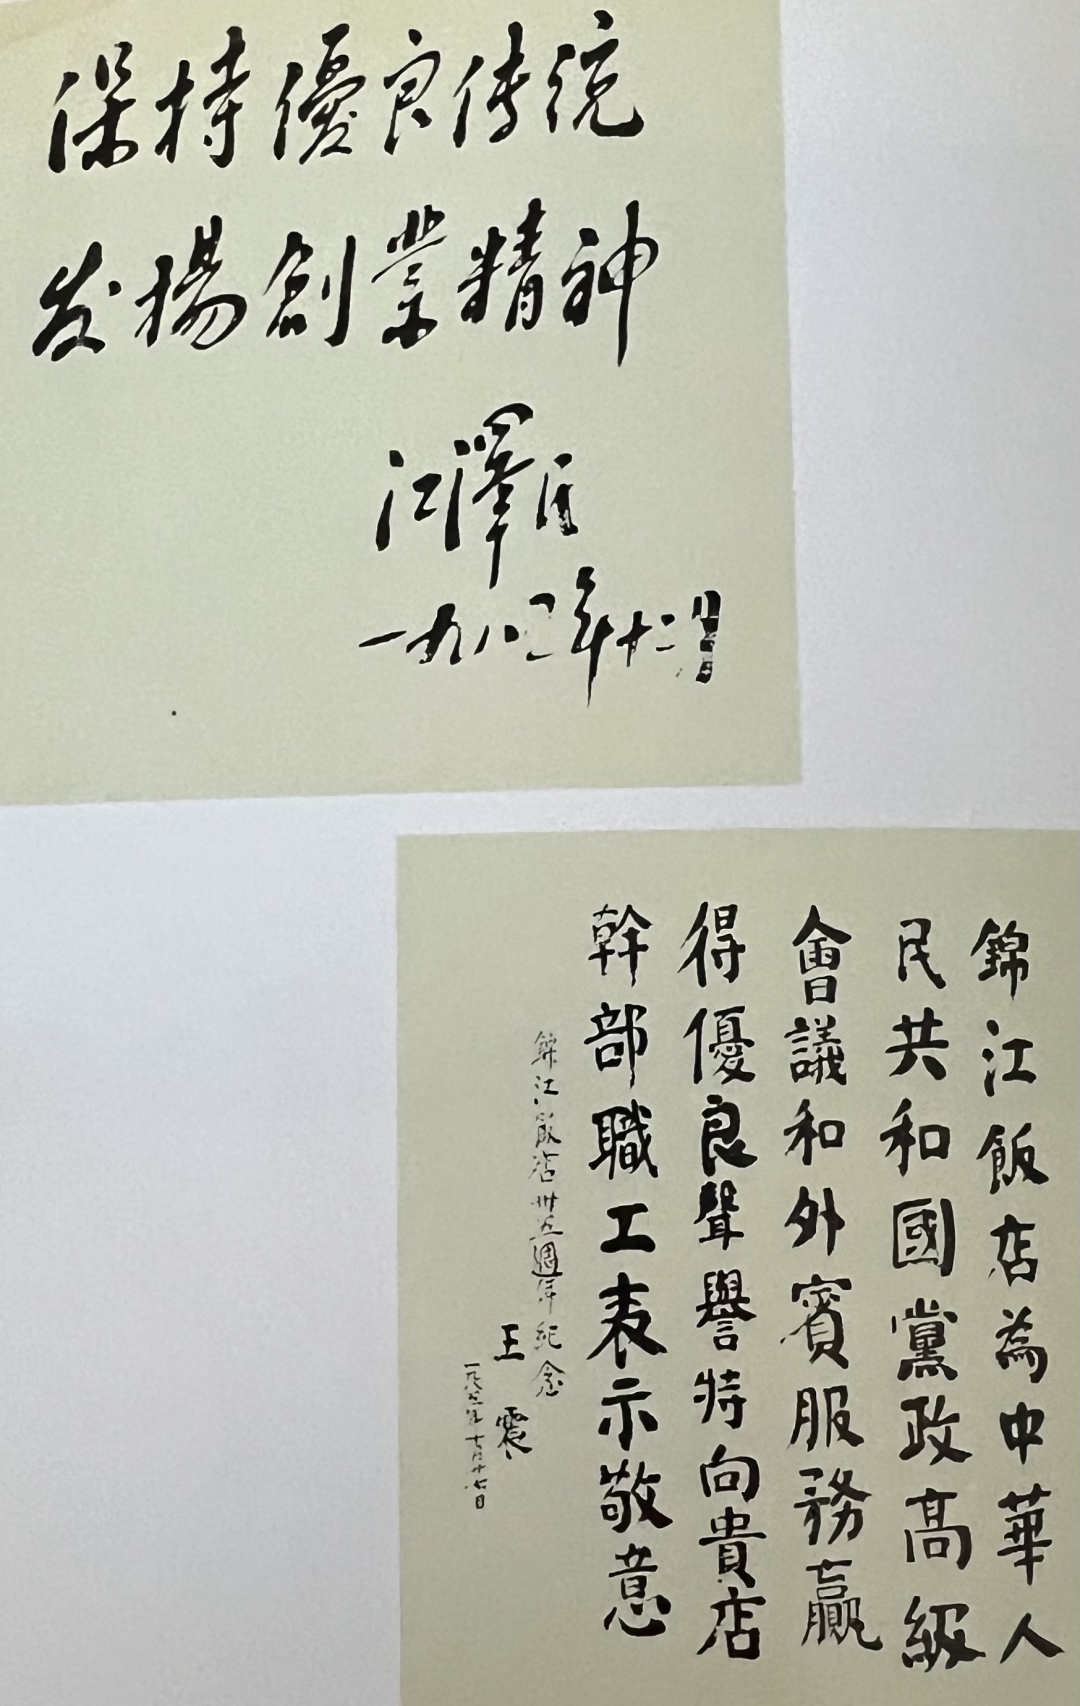 保持優良传统
发揚創業精神
江澤民
一九八 年十二月
錦江飯店為中華人
民共和國黨政高級
會議和外賓服務贏
得優良聲譽特向貴店
幹部職工表示敬意
錦江飯店卅五週年紀念
王震
一九八 年十 月十七日